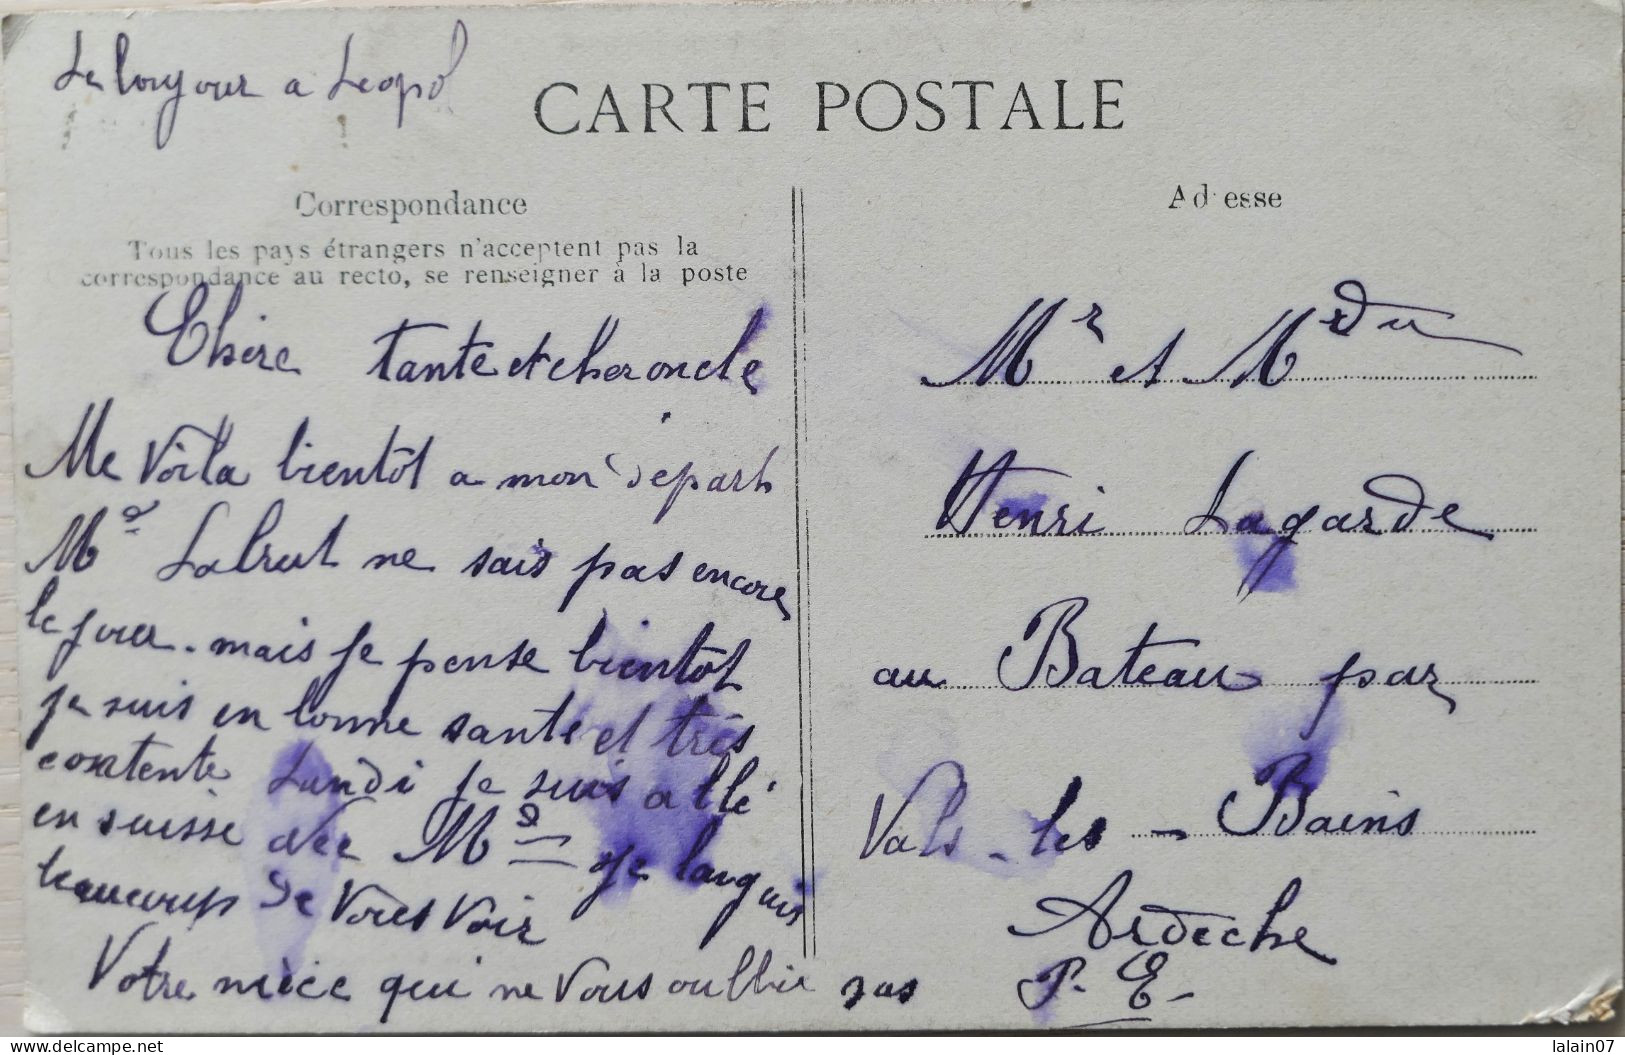 Le bonjour a Leopol
CARTE POSTALE
Correspondance
Tous les pays étrangers n'acceptent pas la
correspondance au recto, se renseigner à la poste
Chère tante et cher oncle
Me voila bientôt a mon départ
Mᵉ Labrut ne sais pas encore
le jour. mais je pense bientôt
je suis en bonne santé et très
contente Lundi je suis allé
en suisse avec Mᵉ je languis
beaucoup de vous voir
Votre nièce qui ne vous oublie pas
Adresse
Mʳ et Mᵐᵉ
Henri Lagarde
au Bateau par
Vals-les-Bains
Ardeche
P. E-
lalain07
www.delcampe.net